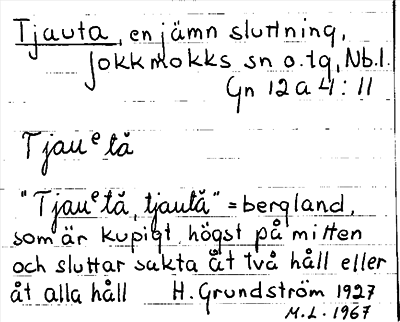 Tjauta, en jämn sluttning,
Jokkmokks sn o. tg, Nb.l.
Gn 12 a 4 : 11
Tjauᵉtă
"Tjauᵉtă, tjaută" = bergland,
som är kupigt, högst på mitten
och sluttar sakta åt två håll eller
åt alla håll H. Grundström 1927
M.L. 1967